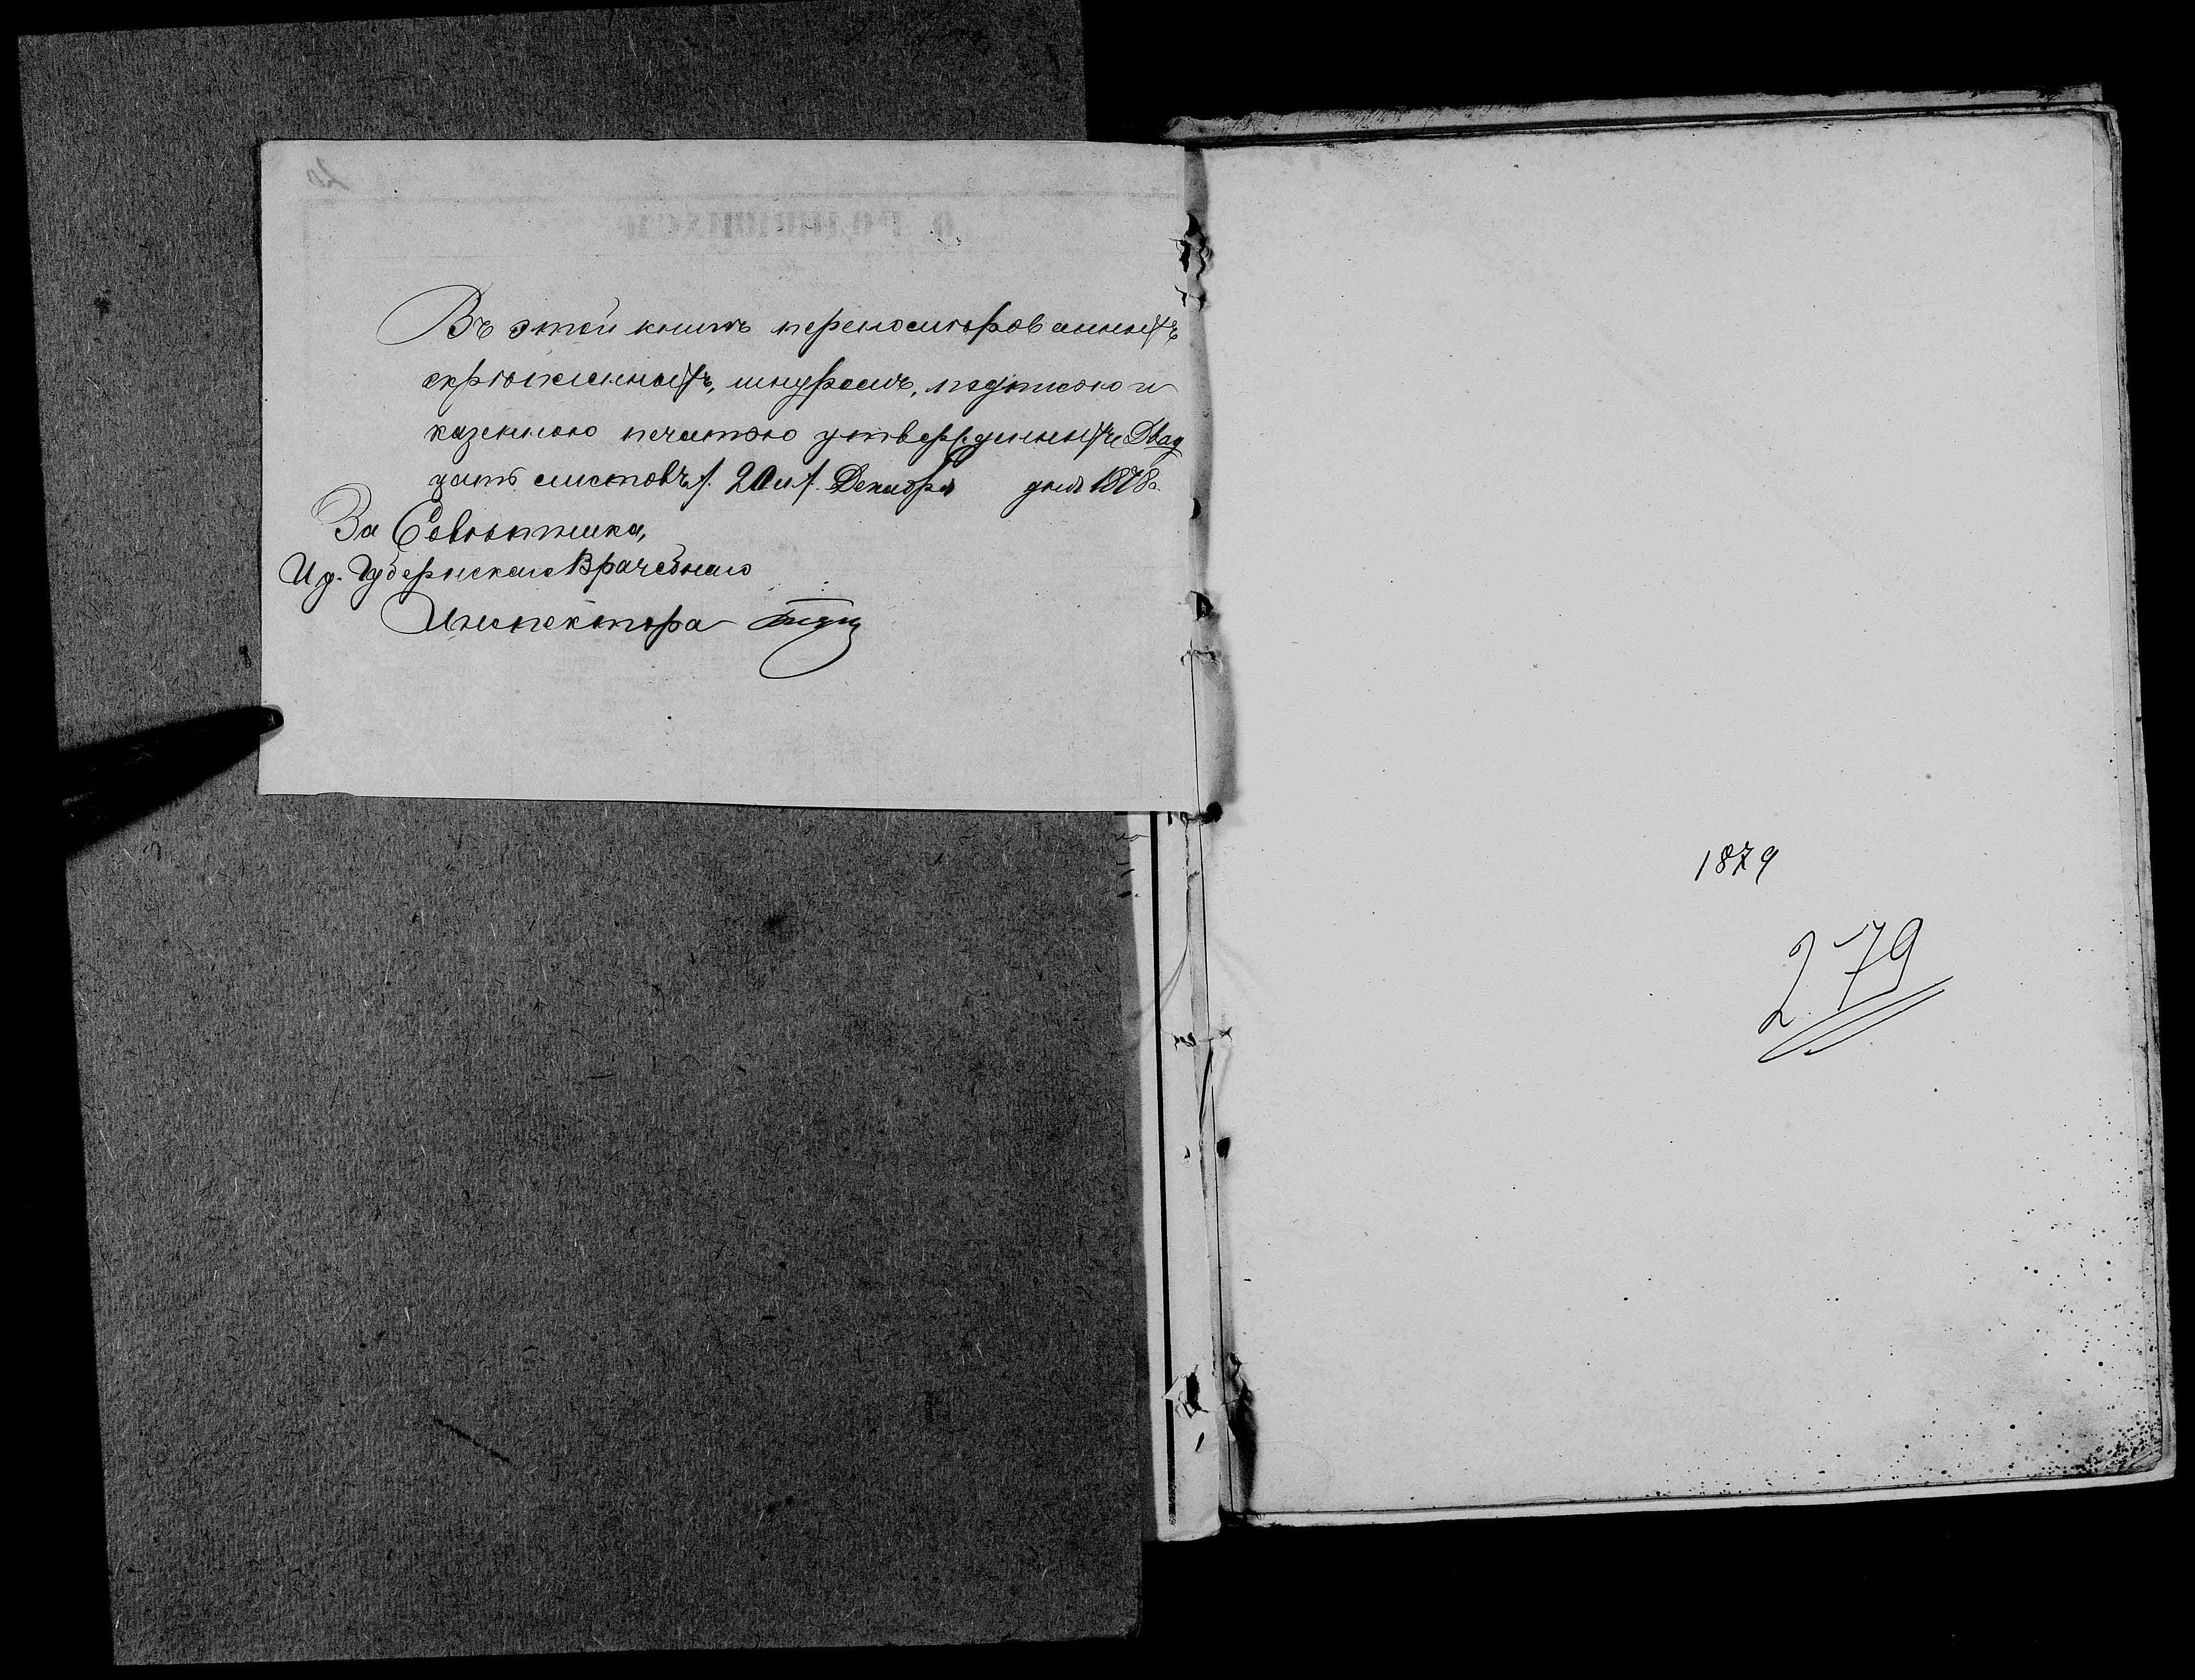 Въ этой книгѣ перенумерованныхъ
скрѣпленныхъ, шнуромъ, подписью и
казенною печатью утвержденныхъ Двад
цать листовъ /. 20 и /. Декабря дня 1878 г.
За Совѣтника,
И д. Губернскаго Врачебнаго
Инспектора
1879
279